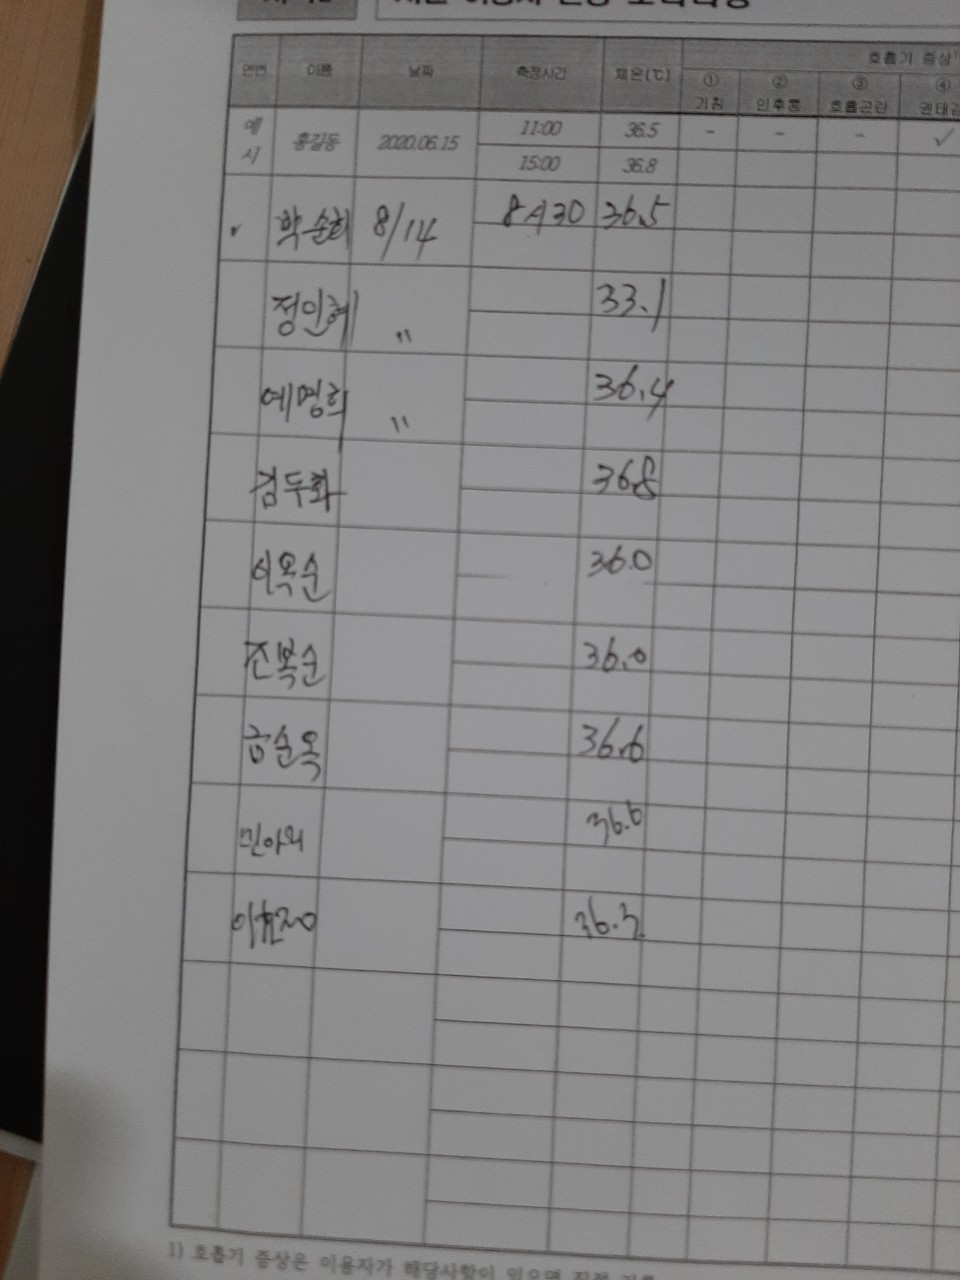 연번 이름 날짜 측정시간 체온(℃) 호흡기 증상
① ② ③ ④
기침 인후통 호흡곤란 권태감
예시 홍길동 2020.06.15 11:00 36.5 - - - ✓
15:00 36.8
박순희 8/14 8시30 36.5
정인혜 〃 33.1
예명희 〃 36.4
김두화 36.8
이옥순 36.0
조복순 36.0
금순옥 36.6
민아외 36.6
이효정 36.3
1) 호흡기 증상은 이용자가 해당사항이 있으면 직접